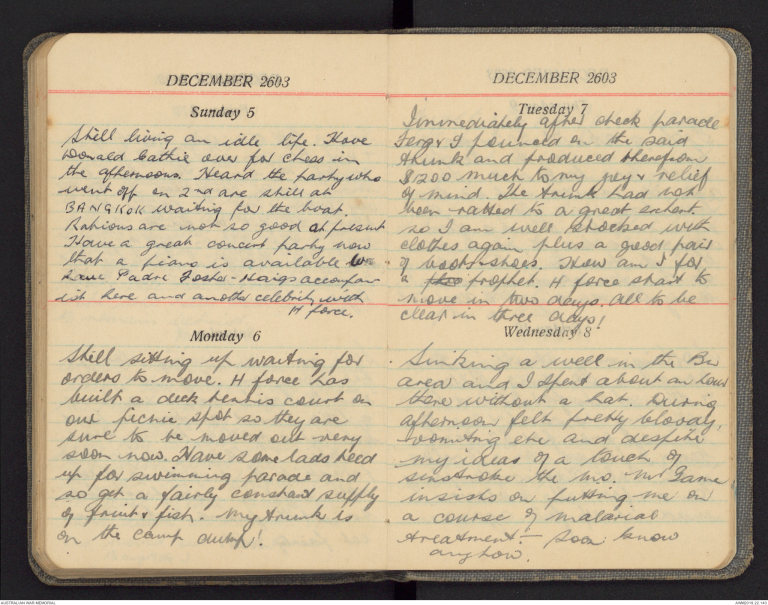 DECEMBER 2603
Sunday 5
Still living an idle life. Have
Donald Cathie over for chess in
the afternoons. Heard the party who
went off on 2nd are still at
BANGKOK waiting for the boat.
Rations are not so good at present
Have a great concert party now
that a piano is available. We
have Padre Foster-Haigs accompan
ist here and another celebrity with
H force.
Monday 6
Still sitting up waiting for
orders to move. H force has
built a deck tennis court on
our picnic spot so they are
sure to be moved out very
soon now. Have some lads
up for swimming parade and
so get a fairly constant supply
of fruit & fish. My trunk is
on the camp dump!
DECEMBER 2603
Tuesday 7
Immediately after check parade
Ferg & I pounced on the said
trunk and produced therefrom
$1200 much to my joy & relief
of mind. The trunk had not
been ratted to a great extent.
so I am well stocked with
clothes again plus a good pair
of boots-shoes. How am I for
a prophet. H force start to
move in two days. All to be
clear in three days!
Wednesday 8
Sinking a well in the Bn
area and I spent about an hour
there without a hat. During
afternoon felt pretty bloody,
vomiting etc and despite
my ideas of a touch of
sunstroke the M.O.
insists on putting me on
a course of malarial
treatment. - Soon know
anyhow.
AUSTRALIAN WAR MEMORIAL